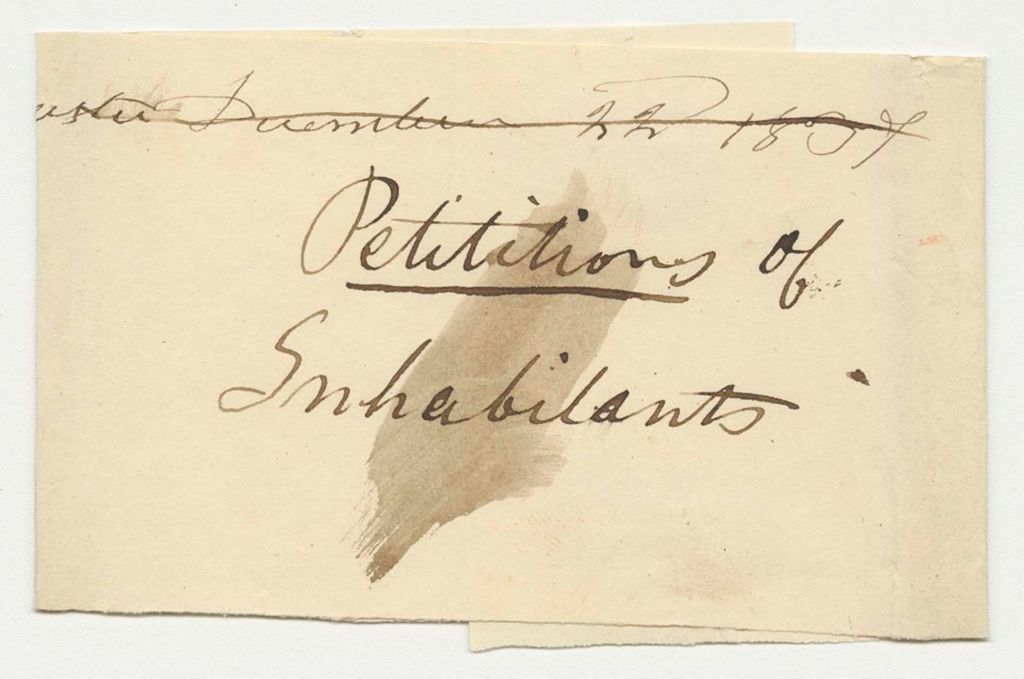 December 22 1837
Petititions of
Inhabitants